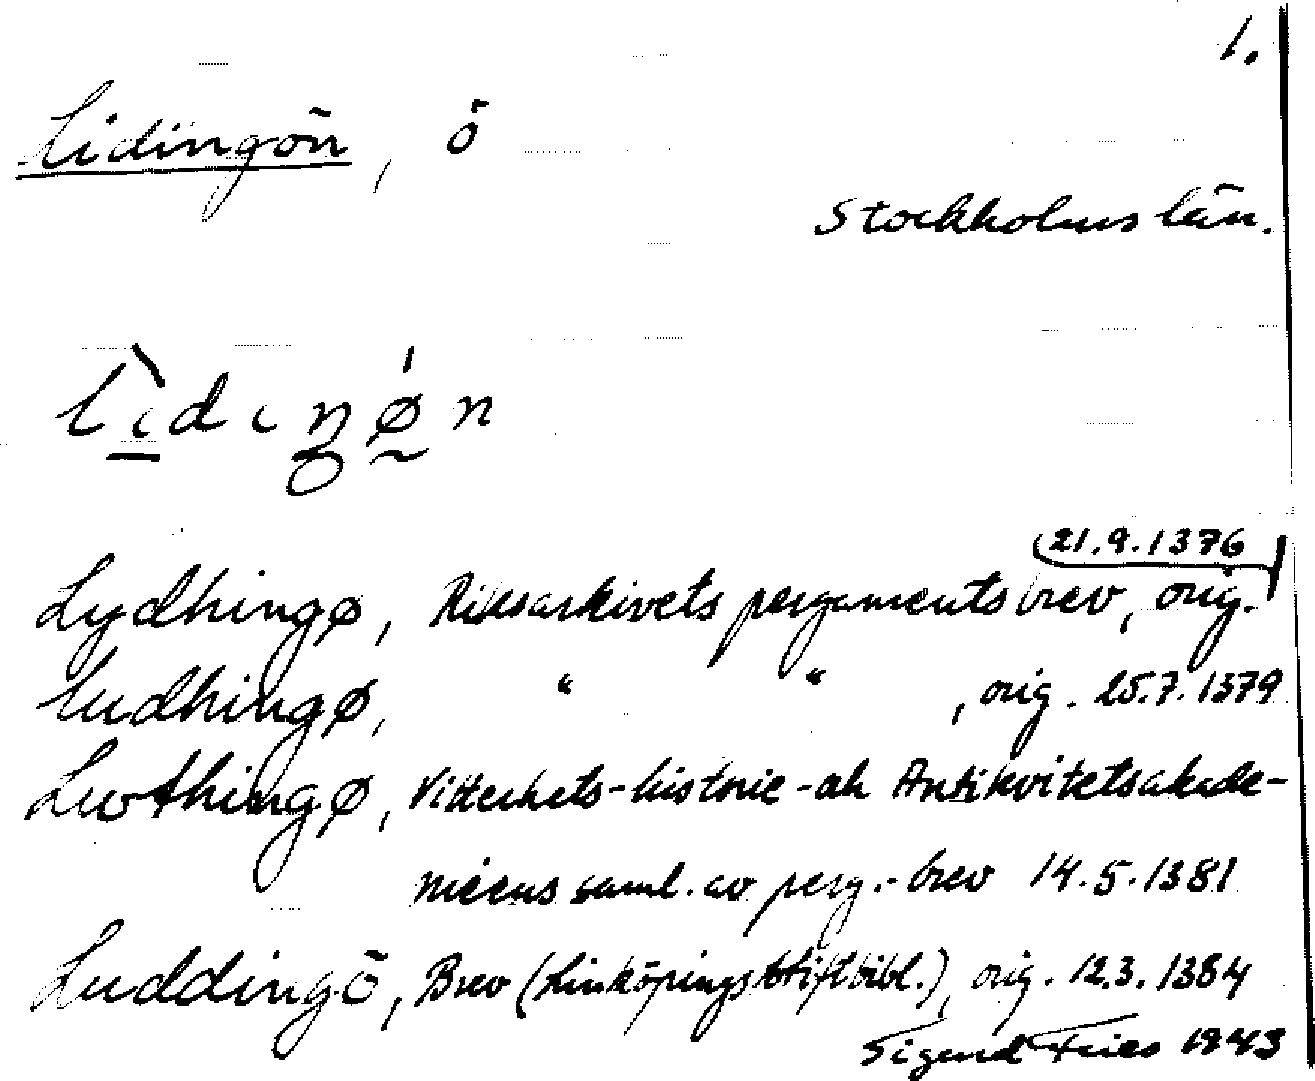 1.
Lidingön, ö
Stockholms län.
lìdıŋǿn
21.9.1376
Lydhingø, Riksarkivets pergamentsbrev, orig.
Ludhingø, " " , orig. 25.7.1379
Lwthingø, Vitterhets-historie-ok Antikvitetsakade-
miens saml. av perg.-brev 14.5.1381
Luddingö, Brev (Linköpings stiftbibl.), orig. 12.3.1384
Sigurd Fries 1943